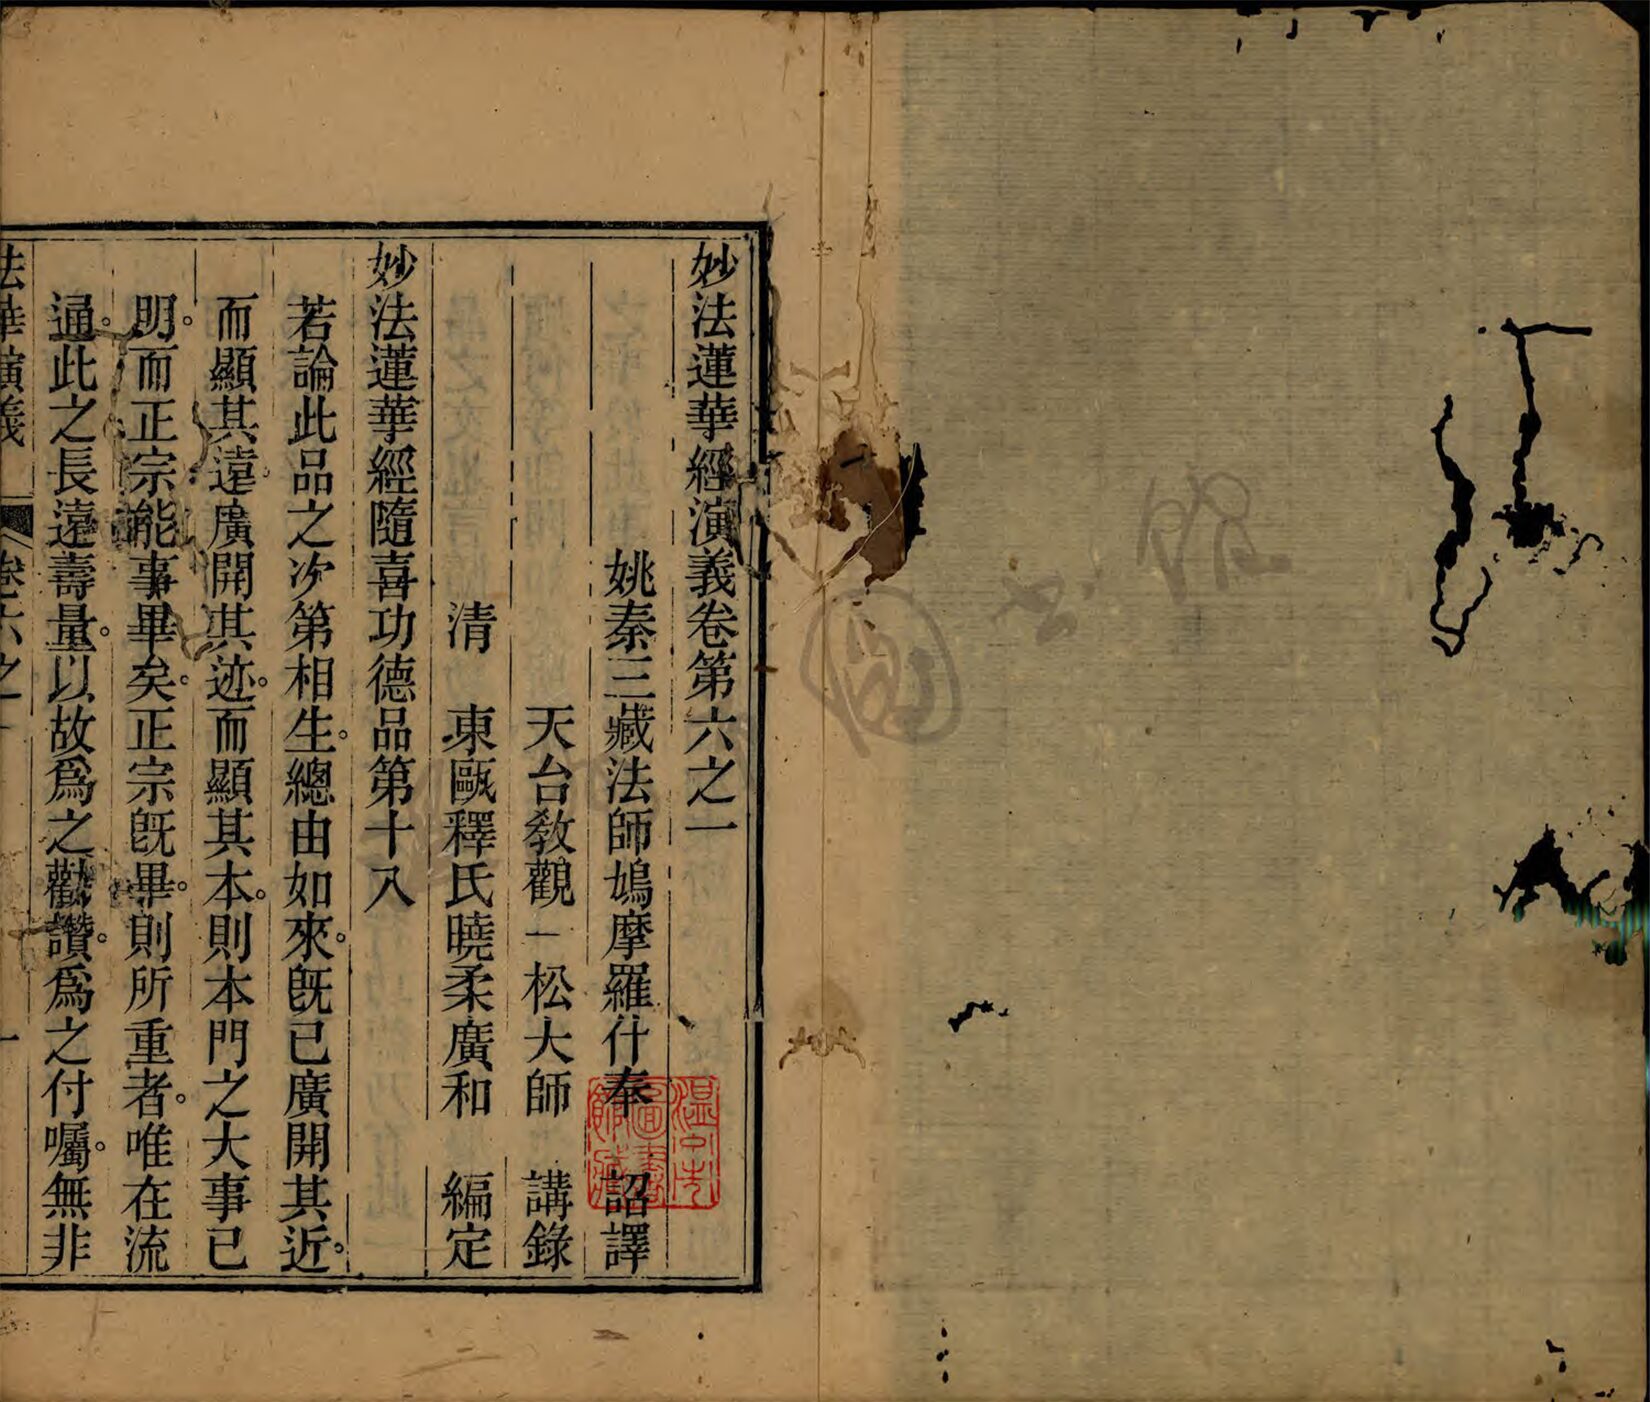 妙法蓮華經演義卷第六之一
姚秦三藏法師鳩摩羅什奉　詔譯
天台教觀一松大師　講錄
清　東甌釋氏曉柔廣和　編定
妙法蓮華經隨喜功德品第十八
若論此品之次第相生。總由如來。既已廣開其近。
而顯其遠。廣開其迹。而顯其本。則本門之大事已
明。而正宗能事畢矣。正宗既畢。則所重者。唯在流
通。此之長遠壽量。以故爲之勸讚。爲之付囑。無非
法華演義　卷六之一　一
館